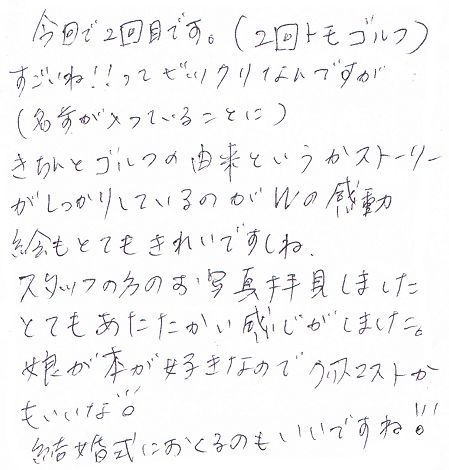 今回で2回目です。(2回トモゴルフ)
すごいね!!ってビックリなんですが
(名前が入っていることに)
きちんとゴルフの由来というかストーリー
がしっかりしているのがWの感動
絵もとてもきれいですしね、
スタッフの方のお写真拝見しました
とてもあたたかい感じがしました。
娘が本が好きなのでクリスマストか
もいいな!!
結婚式におくるのもいいですね!!!